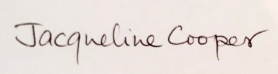 Jacqueline Cooper